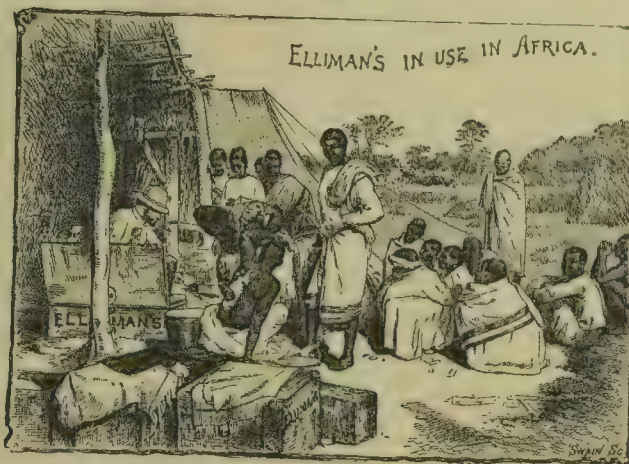 ELLIMAN'S IN USE IN AFRICA.
ELLIMAN'S
SWAIN SC